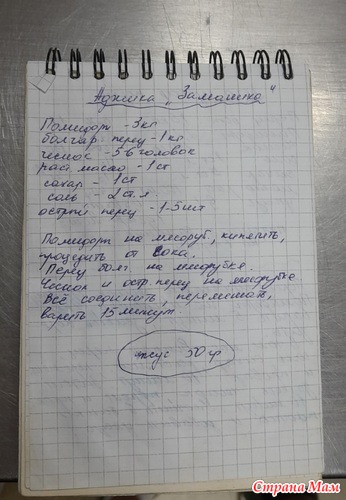 Аджика "Заманиха"
Помидоры - 3 кг
болгар. перец - 1 кг
чеснок - 5-6 головок
рас. масло - 1 ст
сахар - 1 ст
соль - 2 ст. л
острый перец - 1-5 шт
Помидоры на мясоруб., кипятить,
процедить от сока.
Перец болг на мясорубке.
Чеснок и остр перец на мясорубке
Всё соединить, перемешать,
варить 15 минут.
уксус 50 гр
Страна Мам